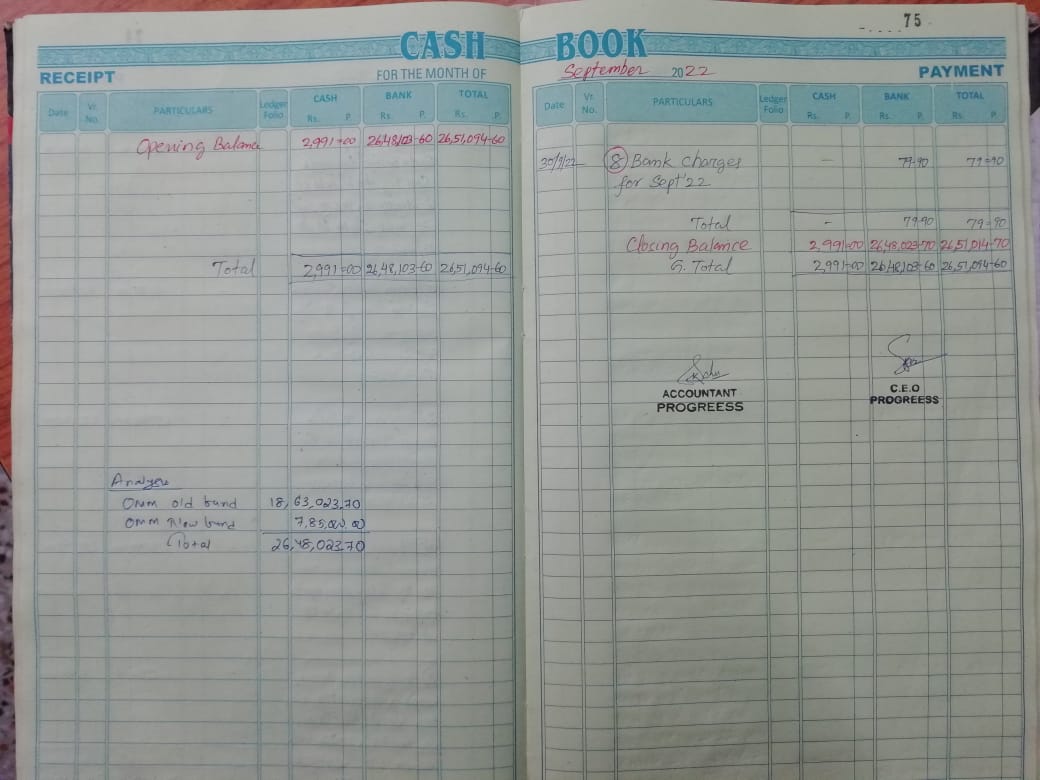 75
CASH BOOK
RECEIPT FOR THE MONTH OF September 2022 PAYMENT
Date Vr. No. PARTICULARS Ledger Folio CASH Rs. P. BANK Rs. P. TOTAL Rs. P.
Opening Balance 2,991=00 26,48,103-60 26,51,094-60
Total 2,991=00 26,48,103-60 26,51,094-60
Analysis
OMM old fund 18,63,023.70
OMM New fund 7,85,000.00
Total 26,48,023.70
Date Vr. No. PARTICULARS Ledger Folio CASH Rs. P. BANK Rs. P. TOTAL Rs. P.
30/9/22 8 Bank Charges — 79-90 79=90
for Sept'22
Total - 79-90 79=90
Closing Balance 2,991-00 26,48,023-70 26,51,014-70
G. Total 2,991-00 26,48,103-60 26,51,094-60
ACCOUNTANT
PROGREESS
C.E.O
PROGREESS